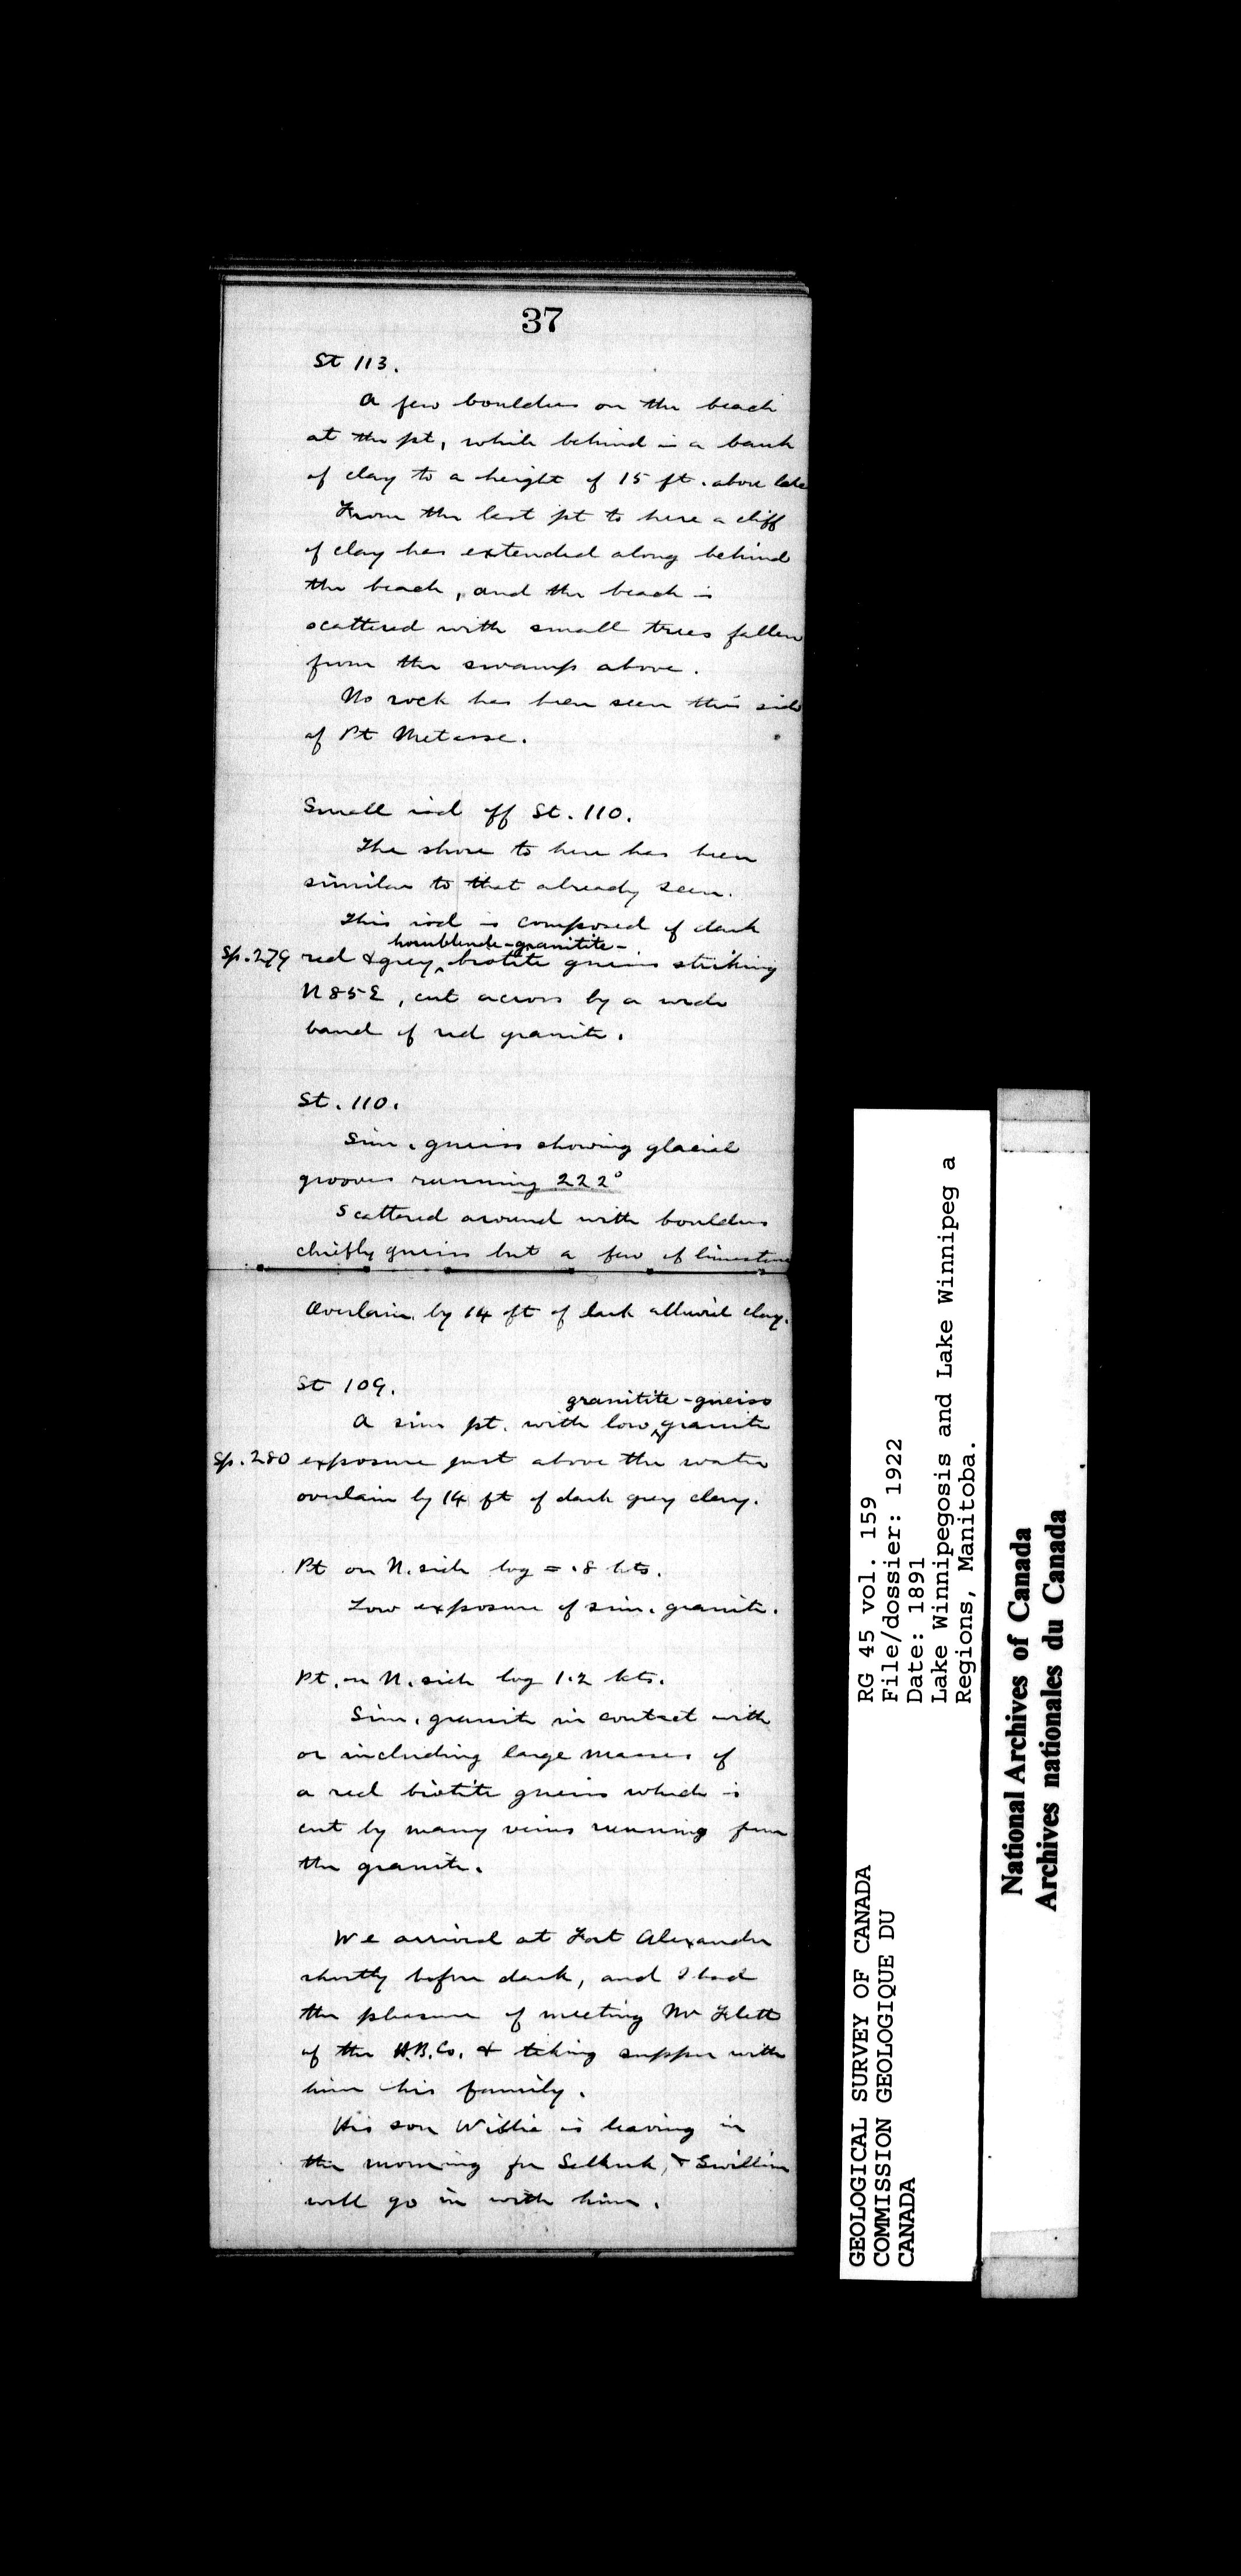 37
St 113.
A few boulders on the beach
at the pt, while behind is a bank
of clay to a height of 15 ft. above lake
From the last pt to here a cliff
of clay has extended along behind
the beach, and the beach is
scattered with small trees fallen
from the swamp above.
No rock has been seen this side
of Pt Metasse.
Small isd off St. 110.
The shore to here has been
similar to that already seen.
This isd is composed of dark
hornblende-granitite-
Sp. 279 red & grey ‸ biotite gneiss striking
N85E, cut across by a wide
band of red granite.
St. 110.
Sim. gneiss showing glacial
grooves running 222°
Scattered around with boulders
chiefly gneiss but a few of limestone
Overlain by 14 ft of dark alluvial clay.
St 109.
granitite-gneiss
A sim pt. with low ‸ granite
Sp. 280 exposure just above the water
overlain by 14 ft of dark grey clay.
Pt on N. side log = .8 kts.
Low exposure of sim. granite.
Pt. on N. side log 1.2 kts.
Sim. granite in contact with
or including large masses of
a red biotite gneiss which is
cut by many veins running from
the granite.
We arrived at Fort Alexander
shortly before dark, and I had
the pleasure of meeting Mr Flett
of the H.B.Co. & taking supper with
him his family.
His son Willie is leaving in
the morning for Selkirk, &
will go in with him.
GEOLOGICAL SURVEY OF CANADA
COMMISSION GEOLOGIQUE DU
CANADA
RG 45 vol. 159
File/dossier: 1922
Date: 1891
Lake Winnipegosis and Lake Winnipeg a
Regions, Manitoba.
National Archives of Canada
Archives nationales du Canada